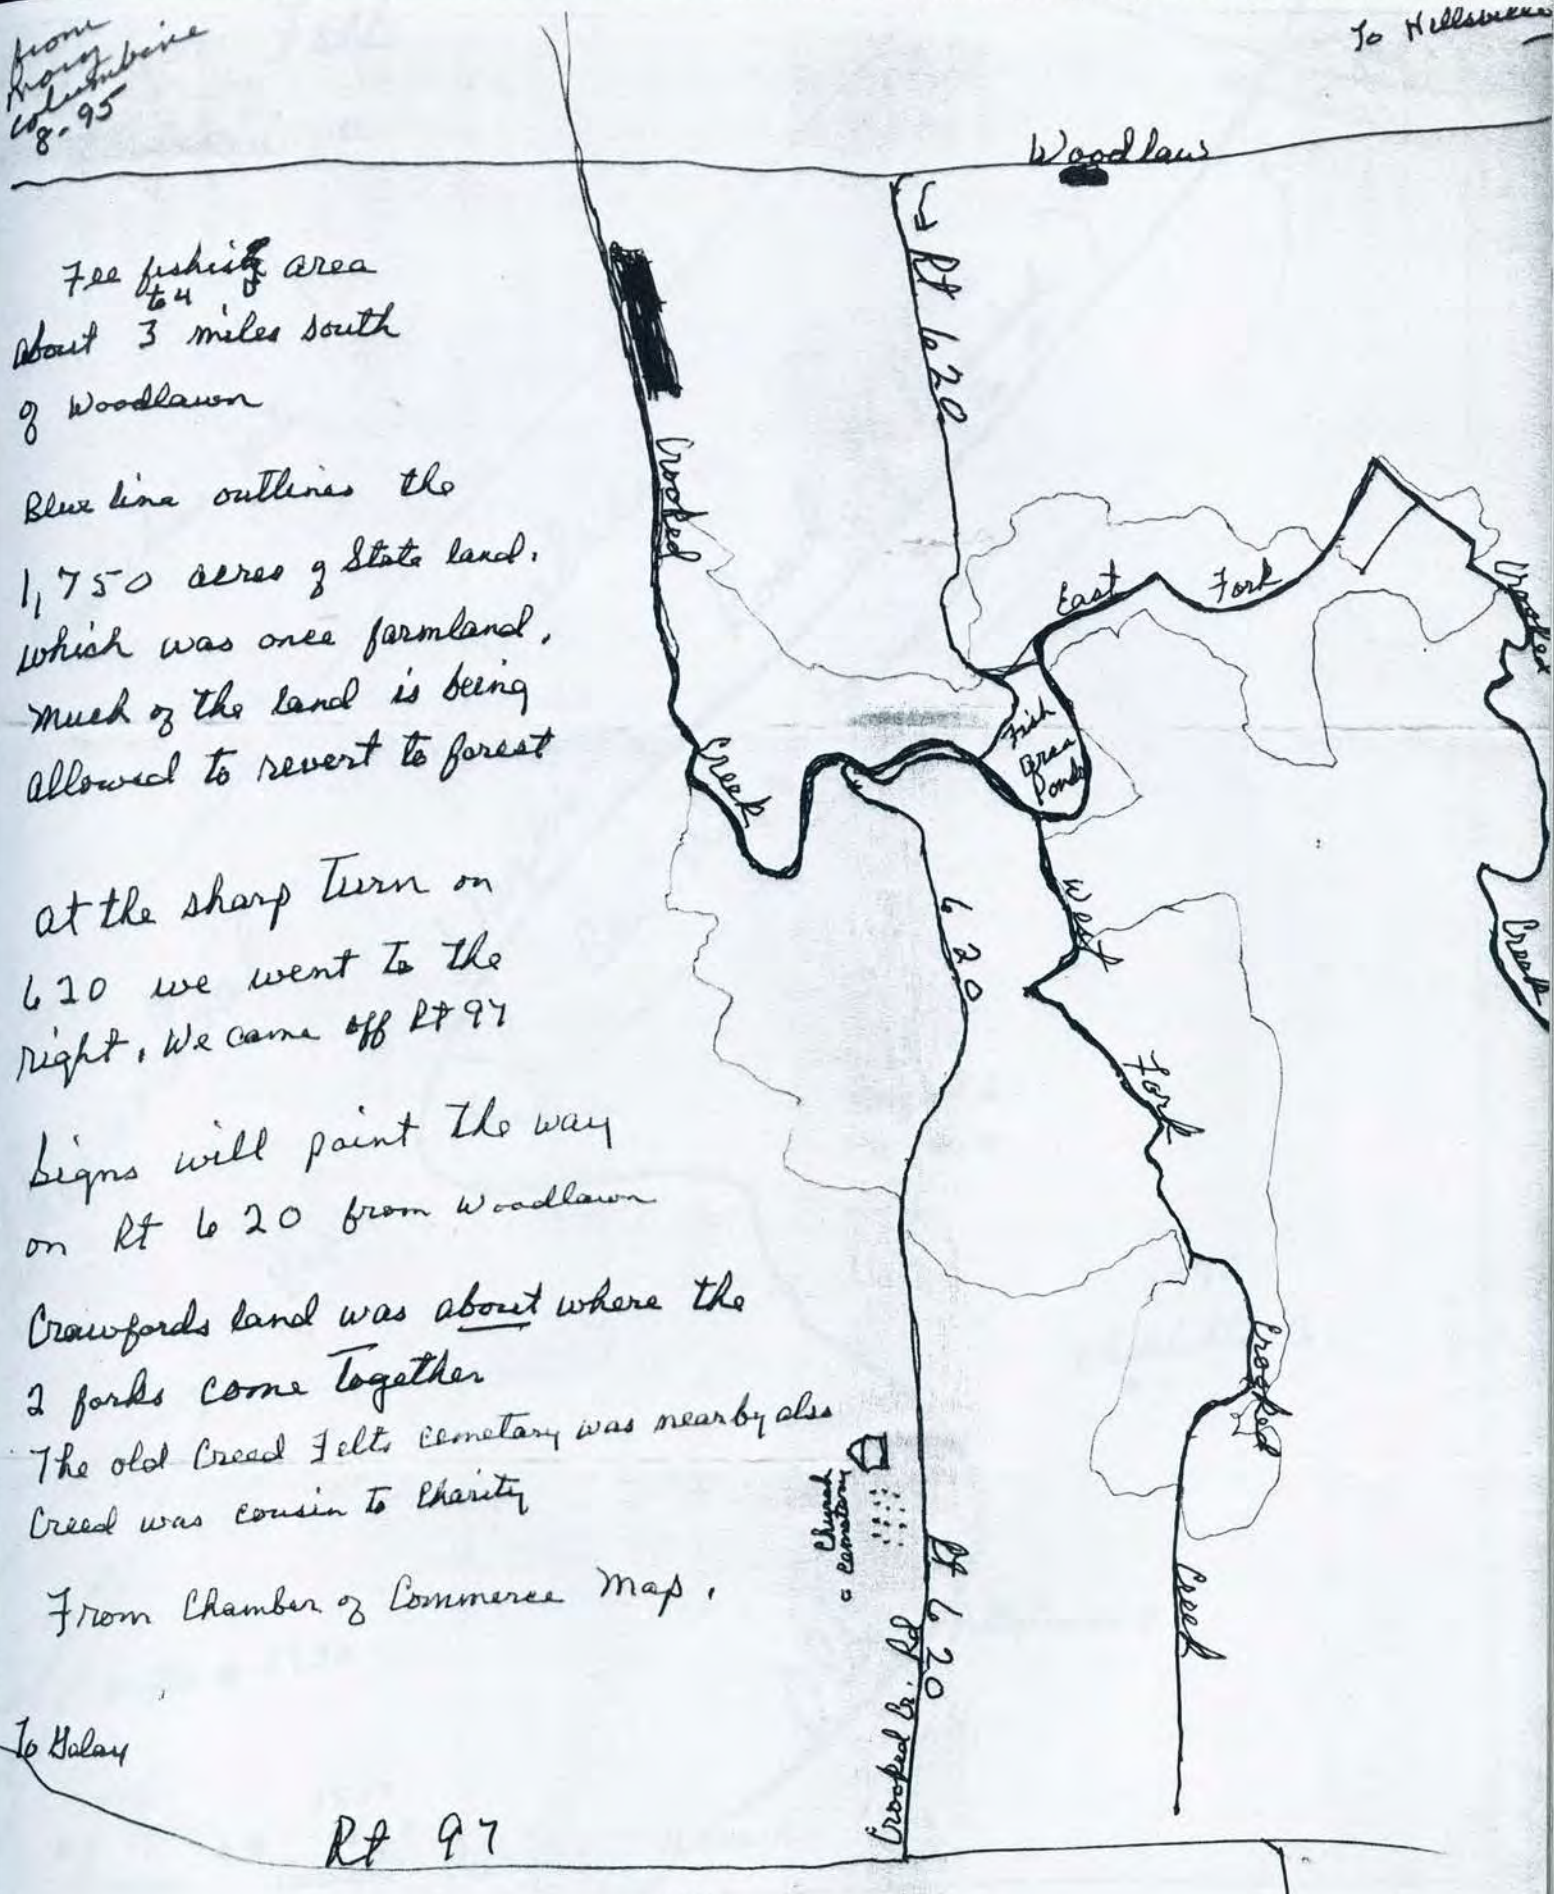 from
Mary
Columbine
8-95
To Hillsville
Woodlawn
Rt 620
Fee fishing area
to 4
about 3 miles south
of Woodlawn
Blue line outlines the
1,750 acres of State land.
which was once farmland.
Much of the land is being
allowed to revert to forest
at the sharp Turn on
620 we went to the
right. We came off Rt 97
Signs will point the way
on Rt 620 from Woodlawn
Crawfords land was about where the
2 forks come together
The old Creed Felts cemetary was nearby also
Creed was cousin to Charity
From Chamber of Commerce Map.
Crooked
Creek
East Fork
Crooked
Creek
Fish
Area
Ponds
620
West
Fork
Crooked
Creek
Church
Cemetary
Rt 620
Crooked Cr. Rd
To Galax
Rt 97